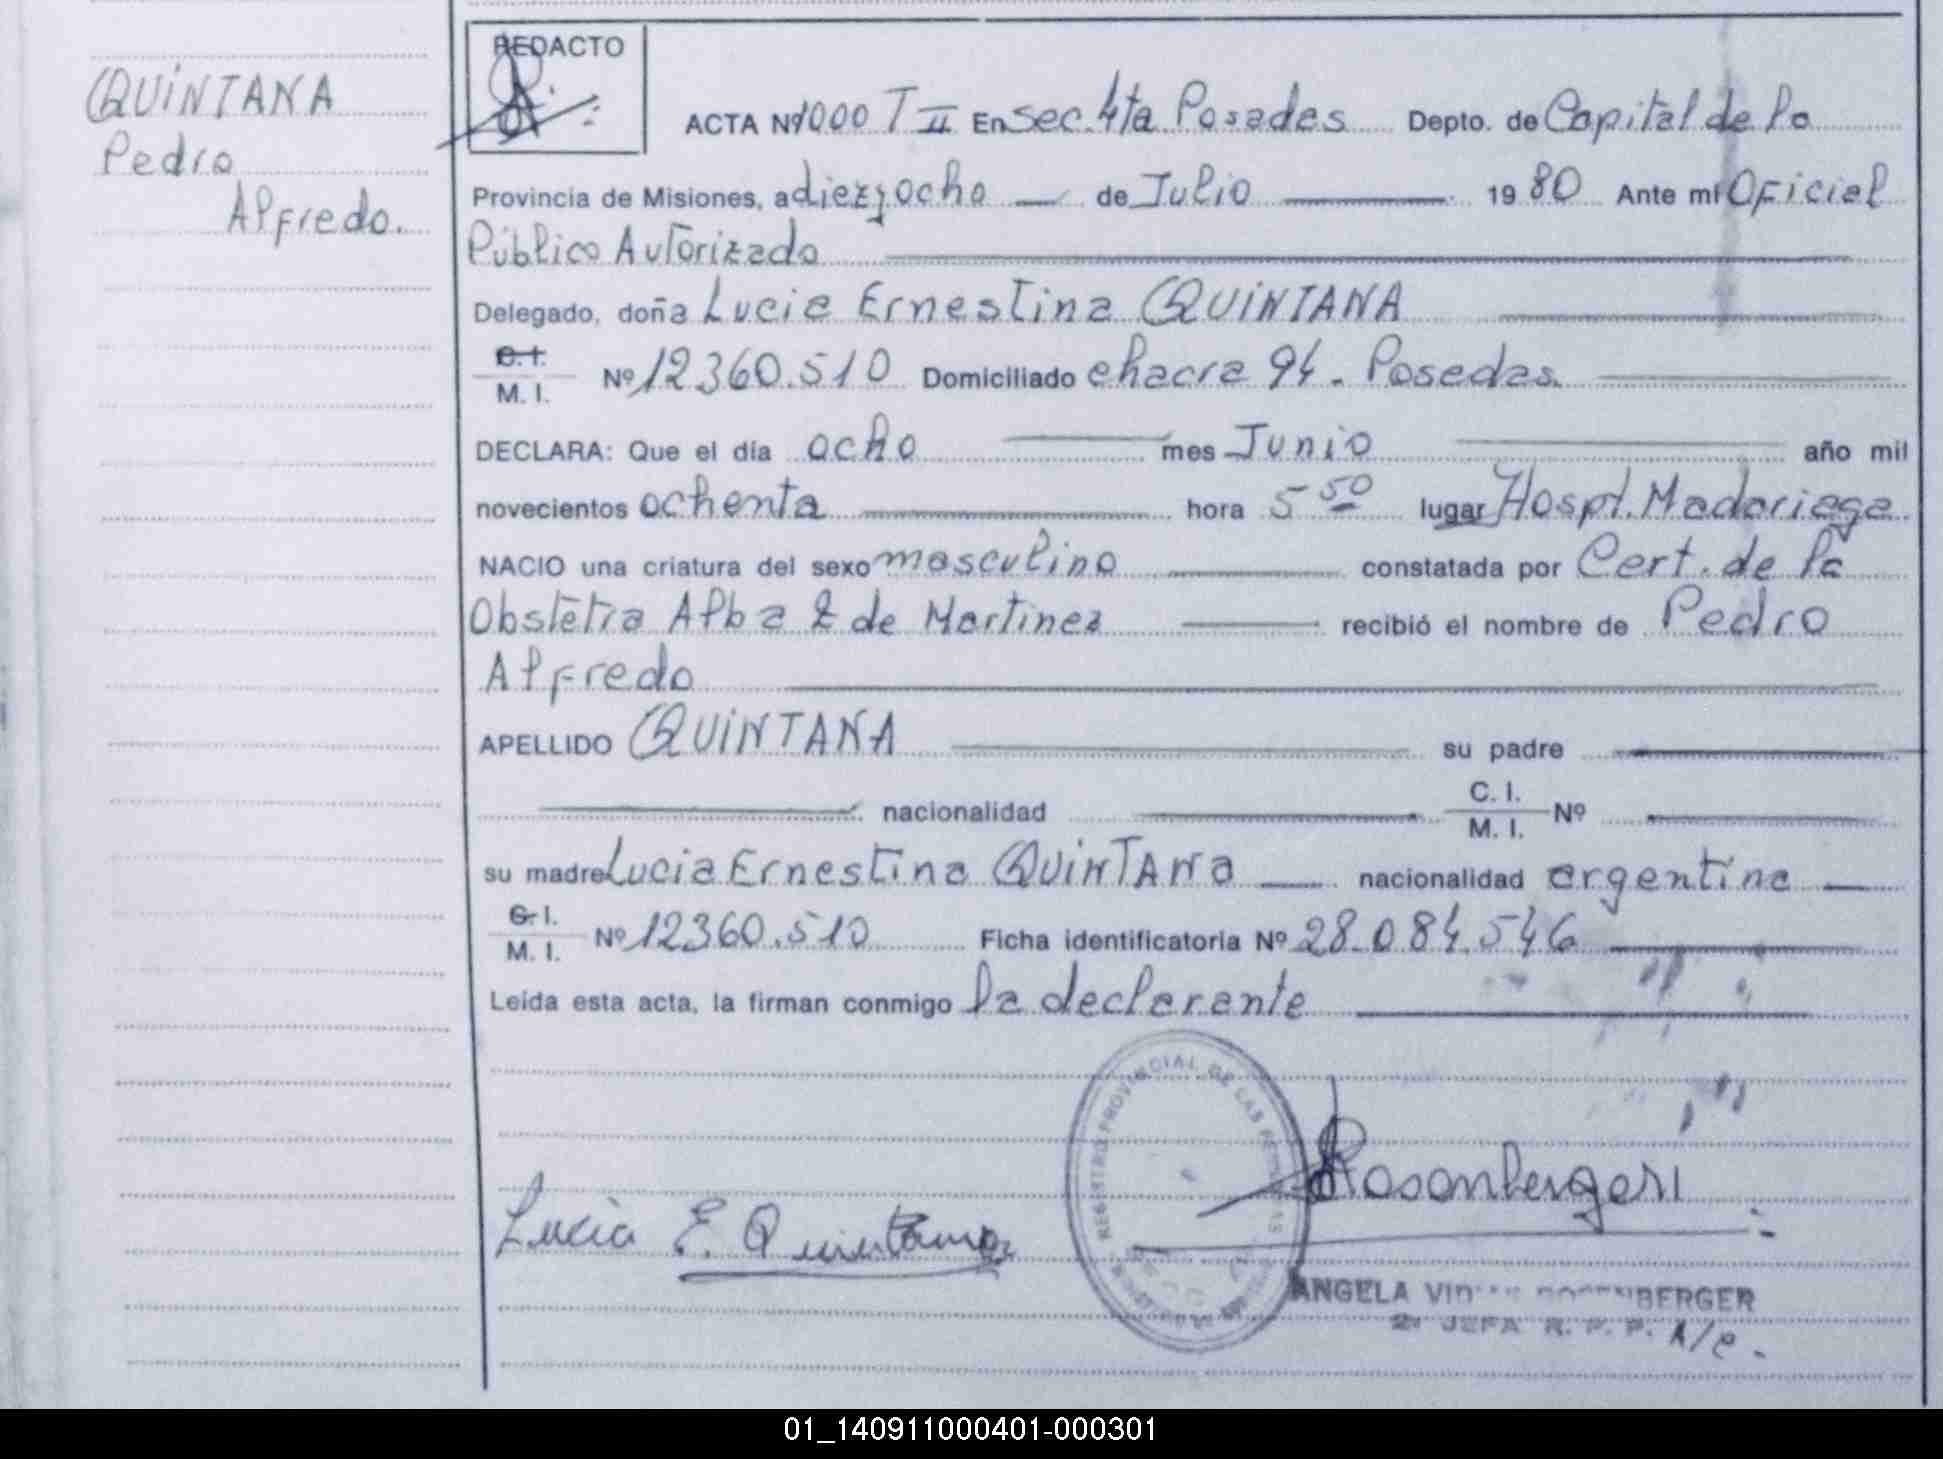 QUINTANA
Pedro
Alfredo.
REDACTO
ACTA Nº 1000 T II En Sec. 4ta Posadas Depto. de Capital de la
Provincia de Misiones, a diez y ocho de Julio 1980 Ante mí Oficial
Público Autorizado
Delegado, doña Lucia Ernestina QUINTANA
C. I.
M. I. Nº 12360.510 Domiciliado chacra 94. Posadas.
DECLARA: Que el día ocho mes Junio año mil
novecientos ochenta hora 5 50 lugar Hospt. Madariaga
NACIO una criatura del sexo masculino constatada por Cert. de la
Obstetra Alba de Martinez recibió el nombre de Pedro
Alfredo
APELLIDO QUINTANA su padre
nacionalidad C. I.
M. I. Nº
su madre Lucia Ernestina QUINTANA nacionalidad argentina
C. I.
M. I. Nº 12360.510 Ficha identificatoria Nº 28.084.546
Leída esta acta, la firman conmigo la declarante
REGISTRO PROVINCIAL DE LAS PERSONAS
Lucia E. Quintana
ANGELA ROSENBERGER
2º JEFA R. P. P. A/C.
01_140911000401-000301